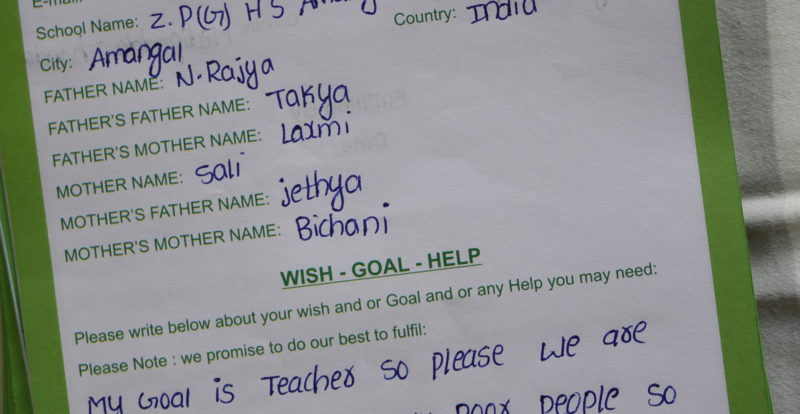 School Name: Z.P(G) H S
Country: India
City: Amangal
FATHER NAME: N.Rajya
FATHER'S FATHER NAME: Takya
FATHER'S MOTHER NAME: Laxmi
MOTHER NAME: Sali
MOTHER'S FATHER NAME: jethya
MOTHER'S MOTHER NAME: Bichani
WISH - GOAL - HELP
Please write below about your wish and or Goal and or any Help you may need:
Please Note : we promise to do our best to fulfil:
My Goal is Teacher so please we are
poor people so